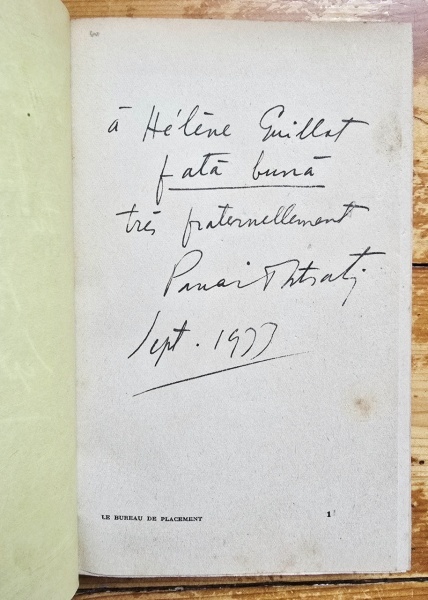 à Hélène Guillot
fată bună
très fraternellement
Panait Istrati
Sept. 1933
LE BUREAU DE PLACEMENT 1